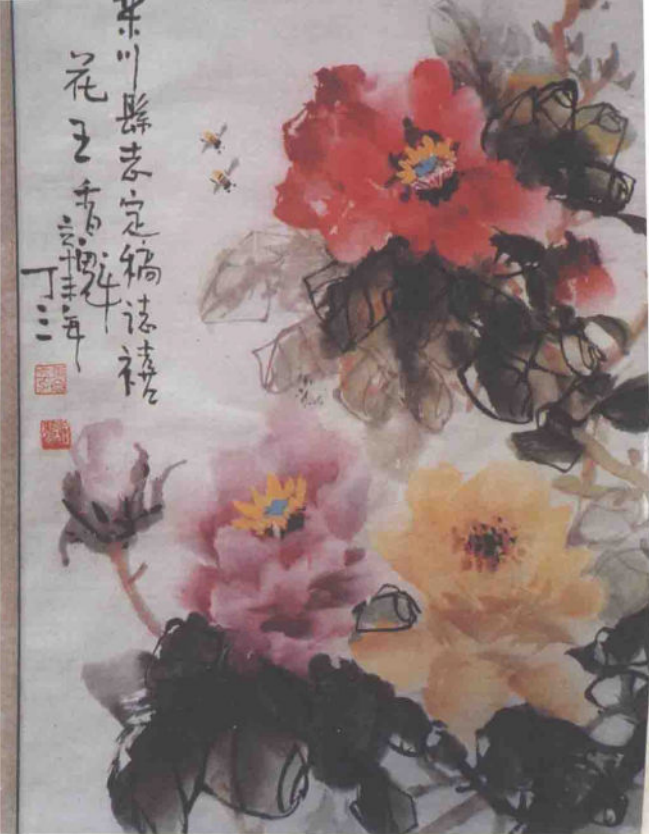 栾川縣志定稿誌禧
花王香魁
丁三